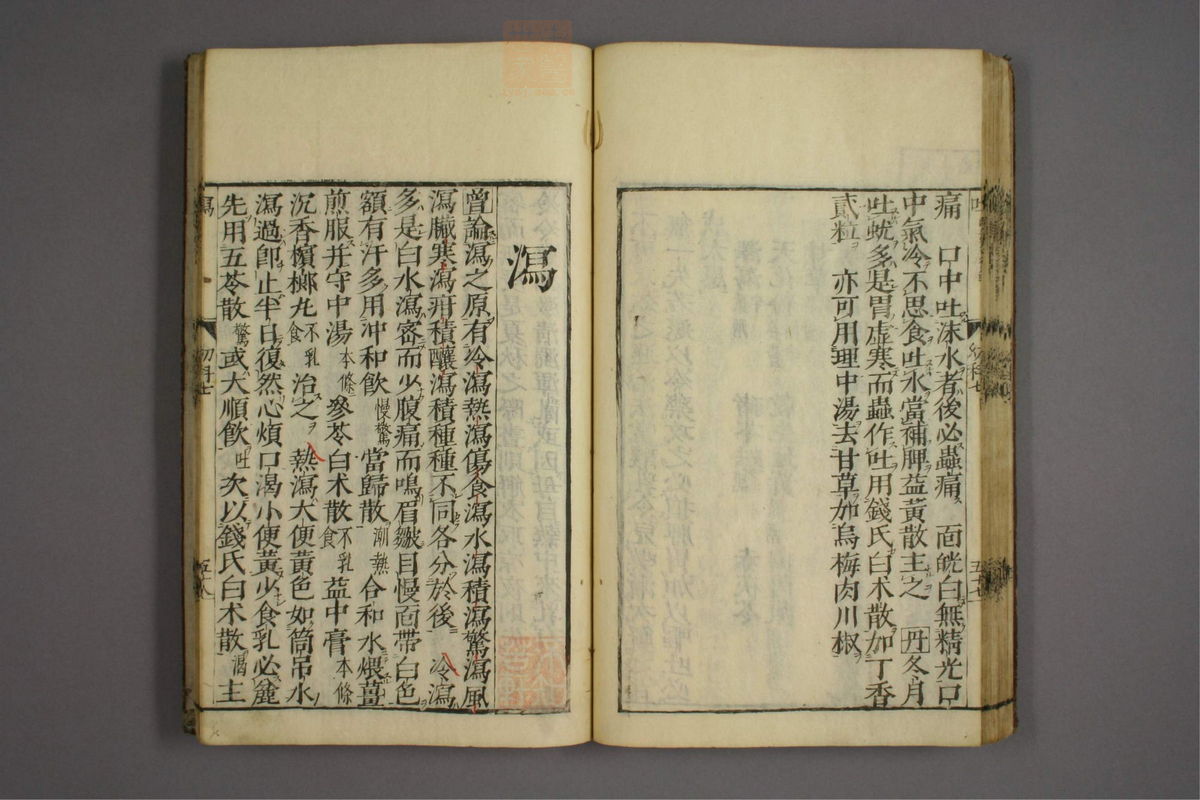 痛　口中吐沫水者後必蟲痛　面㿠白無精光口
中氣冷不思食吐水當補脾益黃散主之　丹冬月
吐蚘多是胃虛寒而蟲作吐用錢氏白朮散加丁香
貳粒　亦可用理中湯去甘草加烏梅肉川椒
瀉
曾論瀉之原有冷瀉熱瀉傷食瀉水瀉積瀉驚瀉風
瀉臟寒瀉疳積釀瀉積種種不同各分於後　冷瀉
多是白水瀉密而少腹痛而鳴眉皺目慢面帶白色
額有汗多用沖和飲慢驚當歸散潮熱合和水煨薑
煎服并守中湯本條參苓白朮散不乳食益中膏本條
沉香檳榔丸不乳食治之　熱瀉大便黃色如筒吊水
瀉過卽止半日復然心煩口渴小便黃少食乳必麄
先用五苓散驚或大順飲吐次以錢氏白朮散渴主